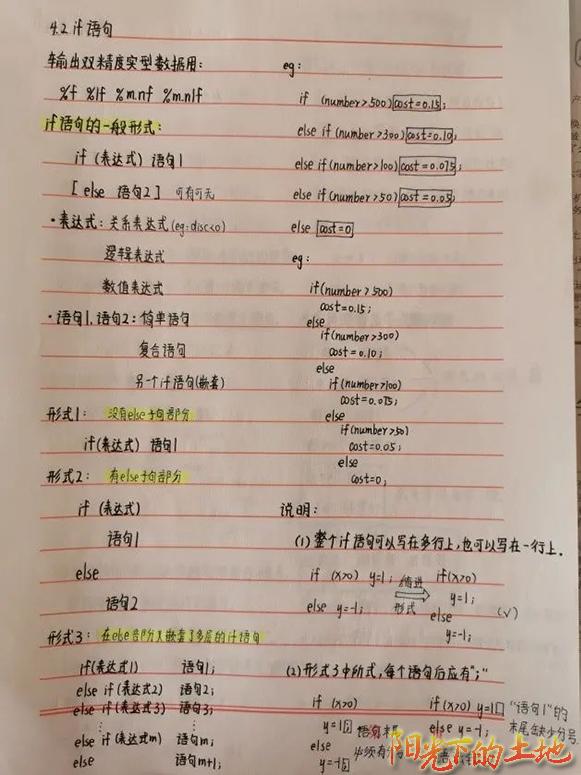 4.2 if 语句
输出双精度实型数据用:
%f %lf %m.nf %m.nlf
if 语句的一般形式:
if (表达式) 语句1
[ else 语句2 ] 可有可无
·表达式: 关系表达式(eg:disc<0)
逻辑表达式
数值表达式
·语句1, 语句2: 简单语句
复合语句
另一个if语句(嵌套)
形式1: 没有else子句部分
if(表达式) 语句1
形式2: 有else子句部分
if (表达式)
语句1
else
语句2
形式3: 在else部分又嵌套了多层的if语句
if(表达式1) 语句1;
else if(表达式2) 语句2;
else if(表达式3) 语句3;
⋮ ⋮
else if(表达式m) 语句m;
else 语句m+1;
eg:
if (number>500) cost=0.15;
else if (number>300) cost=0.10;
else if(number>100) cost=0.075;
else if(number>50) cost=0.05;
else cost=0
eg:
if(number>500)
cost=0.15;
else
if(number>300)
cost=0.10;
else
if(number>100)
cost=0.075;
else
if(number>50)
cost=0.05;
else
cost=0;
说明:
(1) 整个if语句可以写在多行上,也可以写在一行上.
if (x>0) y=1;
else y=-1;
缩进
形式
if(x>0)
y=1;
else
y=-1;
(√)
(2)形式3中所式,每个语句后应有";"
if (x>0)
y=1;
else
y=-1;
语句末
必须有
if(x>0) y=1
else y=-1;
"语句1"的
末尾缺少分号
阳光下的土地